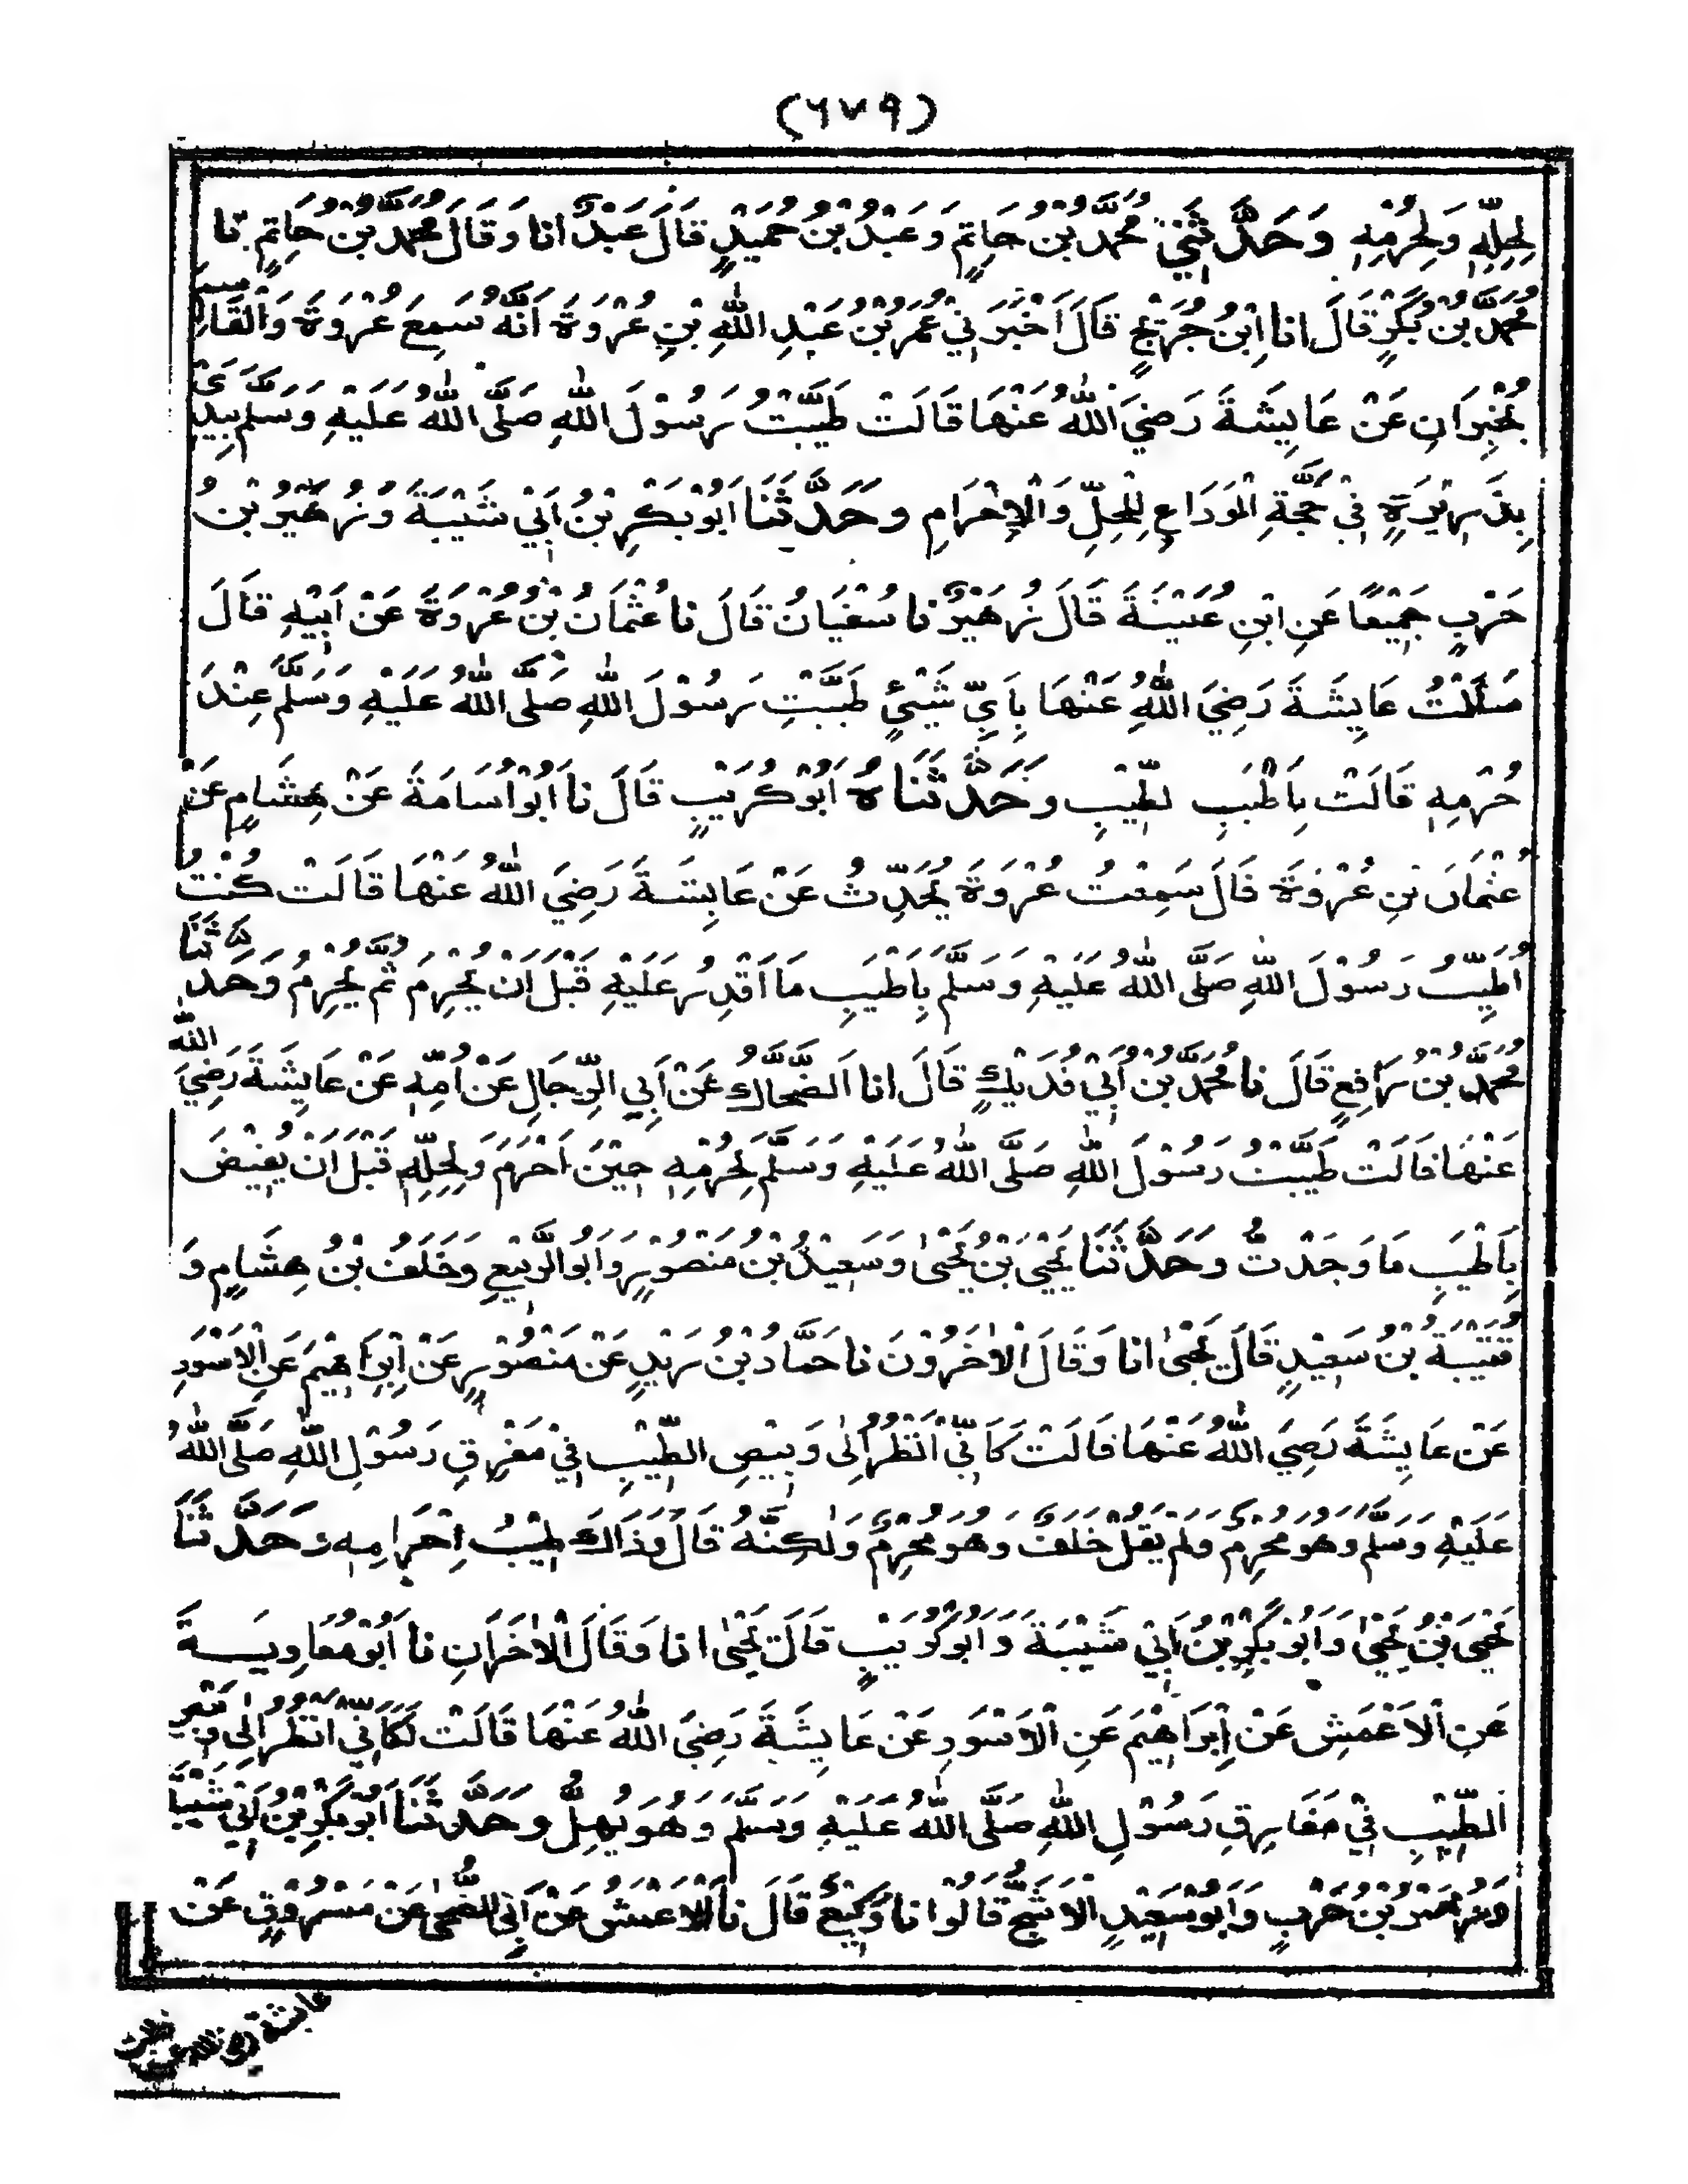 (٦٧٩)
لِحِلِّهِ وَلِحُرْمِهِ وَحَدَّثَنِيْ مُحَمَّدُ بْنُ حَاتِمٍ وَعَبْدُ بْنُ حُمَيْدٍ قَالَ عَبْدٌ انا وَقَالَ مُحَمَّدُ بْنُ حَاتِمٍ نا
مُحَمَّدُ بْنُ بَكْرٍ قَالَ انا اِبْنُ جُرَيْجٍ قَالَ اَخْبَرَنِيْ عُمَرُ بْنُ عَبْدِ اللّٰهِ بْنِ عُرْوَةَ اَنَّهُ سَمِعَ عُرْوَةَ وَالْقَاسِمَ
يُخْبِرَانِ عَنْ عَايِشَةَ رَضِيَ اللّٰهُ عَنْهَا قَالَتْ طَيَّبْتُ رَسُوْلَ اللّٰهِ صَلَّى اللّٰهُ عَلَيْهِ وَسَلَّمَ بِيَدَيَّ
بِذَرِيْرَةٍ فِيْ حَجَّةِ الْوَدَاعِ لِلْحِلِّ وَالْاِحْرَامِ وَحَدَّثَنَا اَبُوْ بَكْرِ بْنُ اَبِيْ شَيْبَةَ وَزُهَيْرُ بْنُ
حَرْبٍ جَمِيْعًا عَنِ ابْنِ عُيَيْنَةَ قَالَ زُهَيْرٌ نا سُفْيَانُ قَالَ نا عُثْمَانُ بْنُ عُرْوَةَ عَنْ اَبِيْهِ قَالَ
سَاَلْتُ عَايِشَةَ رَضِيَ اللّٰهُ عَنْهَا بِاَيِّ شَيْئٍ طَيَّبْتِ رَسُوْلَ اللّٰهِ صَلَّى اللّٰهُ عَلَيْهِ وَسَلَّمَ عِنْدَ
حُرْمِهِ قَالَتْ بِاَطْيَبِ لطِّيْبِ وَحَدَّثَنَاهُ اَبُوْ كُرَيْبٍ قَالَ نا اَبُوْ اُسَامَةَ عَنْ هِشَامٍ عَنْ
عُثْمَانَ بْنِ عُرْوَةَ قَالَ سَمِعْتُ عُرْوَةَ يُحَدِّثُ عَنْ عَايِشَةَ رَضِيَ اللّٰهُ عَنْهَا قَالَتْ كُنْتُ
اُطَيِّبُ رَسُوْلَ اللّٰهِ صَلَّى اللّٰهُ عَلَيْهِ وَسَلَّمَ بِاَطْيَبِ مَا اَقْدِرُ عَلَيْهِ قَبْلَ اَنْ يُحْرِمَ ثُمَّ يُحْرِمُ وَحَدَّثَنَا
مُحَمَّدُ بْنُ رَافِعٍ قَالَ نا مُحَمَّدُ بْنُ اَبِيْ فُدَيْكٍ قَالَ انا الضَّحَّاكُ عَنْ اَبِي الرِّجَالِ عَنْ اُمِّهِ عَنْ عَايِشَةَ رَضِيَ اللّٰهُ
عَنْهَا قَالَتْ طَيَّبْتُ رَسُوْلَ اللّٰهِ صَلَّى اللّٰهُ عَلَيْهِ وَسَلَّمَ لِحُرْمِهِ حِيْنَ اَحْرَمَ وَلِحِلِّهِ قَبْلَ اَنْ يُفِيْضَ
بِاَطْيَبِ مَا وَجَدْتُ وَحَدَّثَنَا يَحْيَى بْنُ يَحْيٰى وَسَعِيْدُ بْنُ مَنْصُوْرٍ وَاَبُو الرَّبِيْعِ وَخَلَفُ بْنُ هِشَامٍ وَ
قُتَيْبَةُ بْنُ سَعِيْدٍ قَالَ يَحْيٰى انا وَقَالَ الْاٰخَرُوْنَ نا حَمَّادُ بْنُ زَيْدٍ عَنْ مَنْصُوْرٍ عَنْ اِبْرَاهِيْمَ عَنِ الْاَسْوَدِ
عَنْ عَايِشَةَ رَضِيَ اللّٰهُ عَنْهَا قَالَتْ كَاَنِّيْ اَنْظُرُ اِلٰى وَبِيْصِ الطِّيْبِ فِيْ مَفْرِقِ رَسُوْلِ اللّٰهِ صَلَّى اللّٰهُ
عَلَيْهِ وَسَلَّمَ وَهُوَ مُحْرِمٌ وَلَمْ يَقُلْ خَلَفٌ وَهُوَ مُحْرِمٌ وَلٰكِنَّهُ قَالَ وَذَاكَ طِيْبُ اِحْرَامِهِ وَحَدَّثَنَا
يَحْيَى بْنُ يَحْيٰى وَاَبُوْ بَكْرِ بْنُ اَبِيْ شَيْبَةَ وَاَبُوْ كُرَيْبٍ قَالَ يَحْيٰى انا وَقَالَ الْاٰخَرَانِ نا اَبُوْ مُعَاوِيَةَ
عَنِ الْاَعْمَشِ عَنْ اِبْرَاهِيْمَ عَنِ الْاَسْوَدِ عَنْ عَايِشَةَ رَضِيَ اللّٰهُ عَنْهَا قَالَتْ لَكَاَنِّيْ اَنْظُرُ اِلٰى وَبِيْصِ
الطِّيْبِ فِيْ مَفَارِقِ رَسُوْلِ اللّٰهِ صَلَّى اللّٰهُ عَلَيْهِ وَسَلَّمَ وَهُوَ يُهِلُّ وَحَدَّثَنَا اَبُوْ بَكْرِ بْنُ اَبِيْ شَيْبَةَ
وَزُهَيْرُ بْنُ حَرْبٍ وَاَبُوْ سَعِيْدٍ الْاَشَجُّ قَالُوْا نا وَكِيْعٌ قَالَ نا الْاَعْمَشُ عَنْ اَبِي الضُّحٰى عَنْ مَسْرُوْقٍ عَنْ
عايشة رضي الله عنها قالت